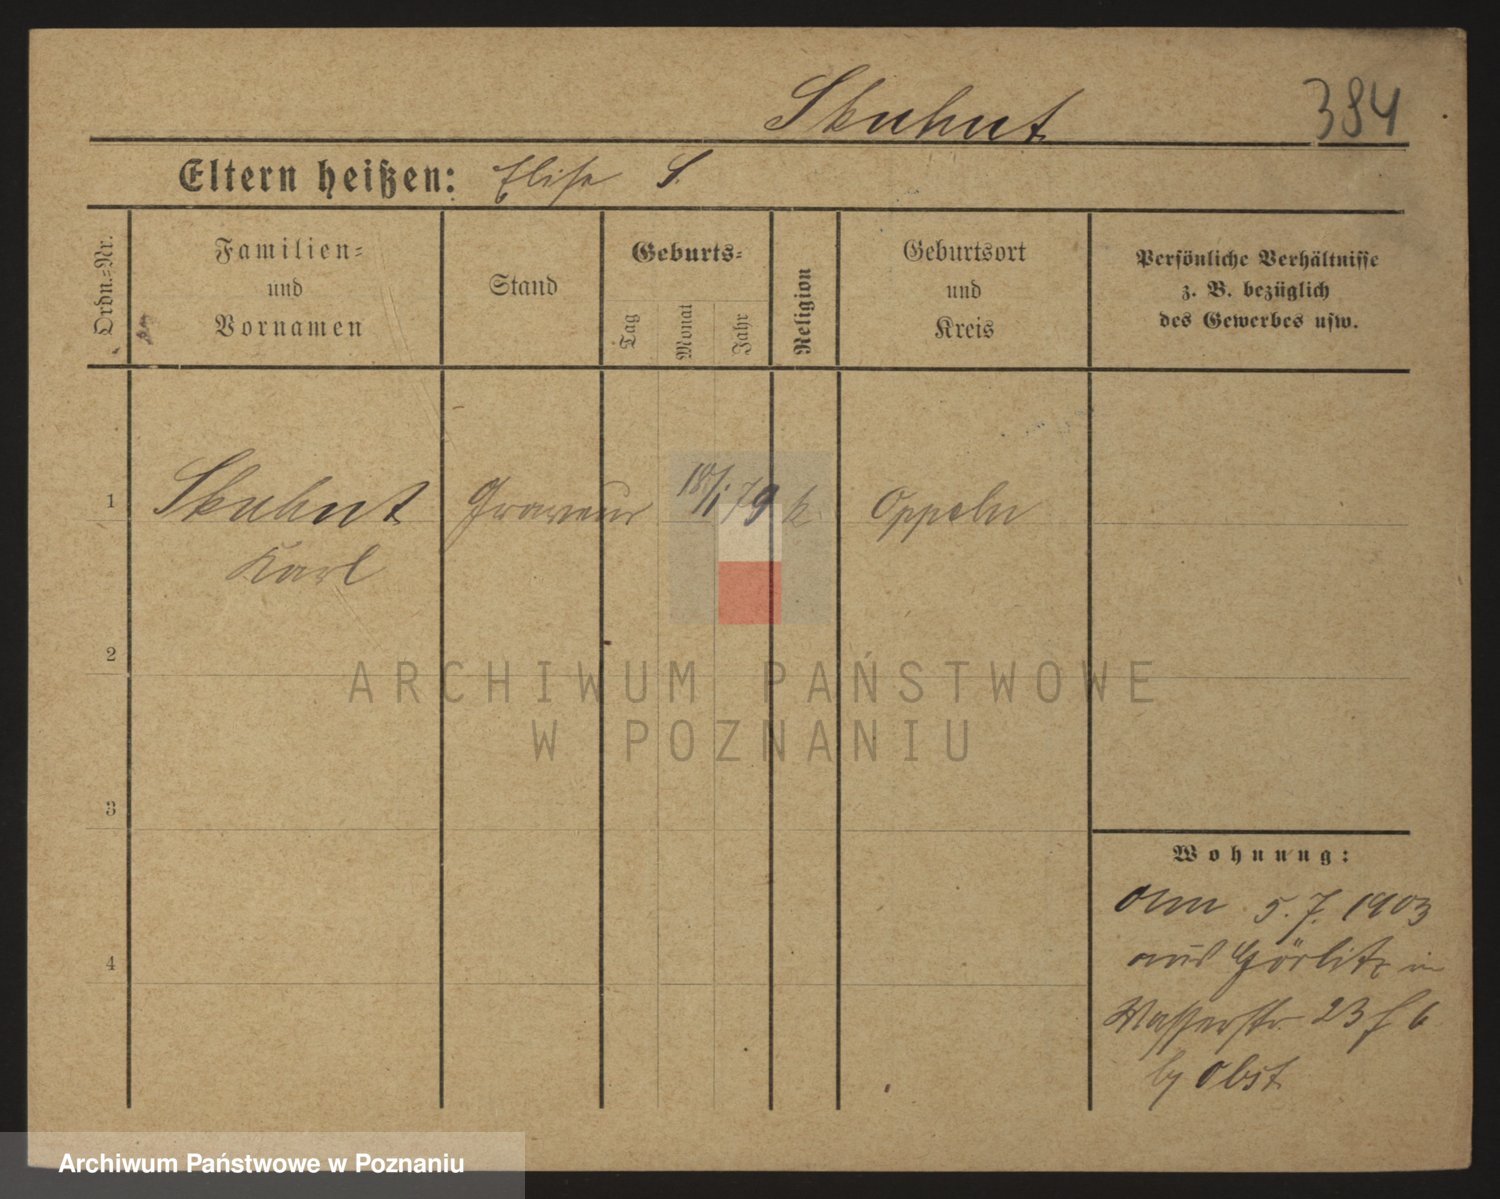 Skuhnt 384
Eltern heißen: Elise S.
Ordn.-Nr.
Familien-
und
Vornamen
Stand
Geburts-
Tag
Monat
Jahr
Religion
Geburtsort
und
Kreis
Persönliche Verhältnisse
z. B. bezüglich
des Gewerbes usw.
1 Skuhnt Graveur 18/1 79 k Oppeln
Karl
2
3
4
Wohnung:
5. 7. 1903
aus Görlitz in
Wasserstr 23
by Obst
ARCHIWUM PAŃSTWOWE
W POZNANIU
Archiwum Państwowe w Poznaniu